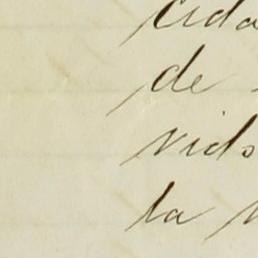 cida
de
vids
la